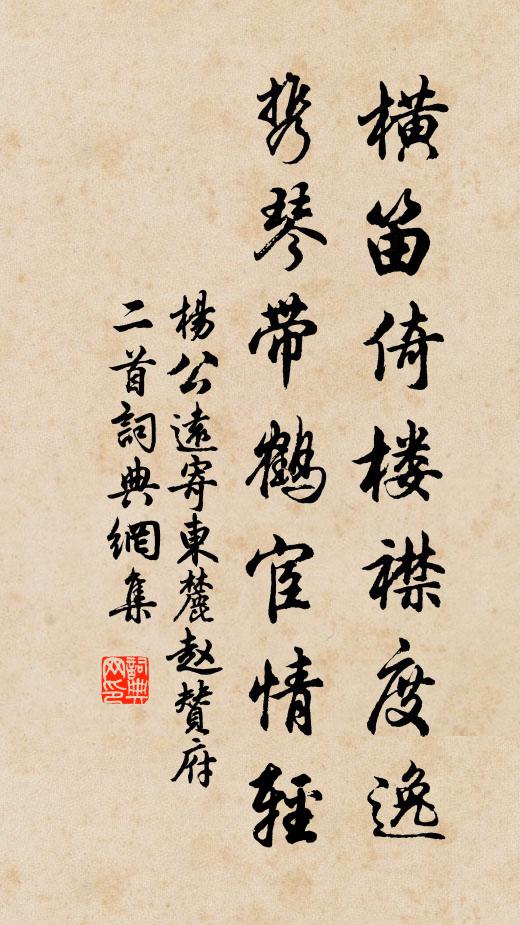 横笛倚楼襟度逸
携琴带鹤宦情轻
楊公遠寄東麓赵赞府
二首詞典網集
詞典网印